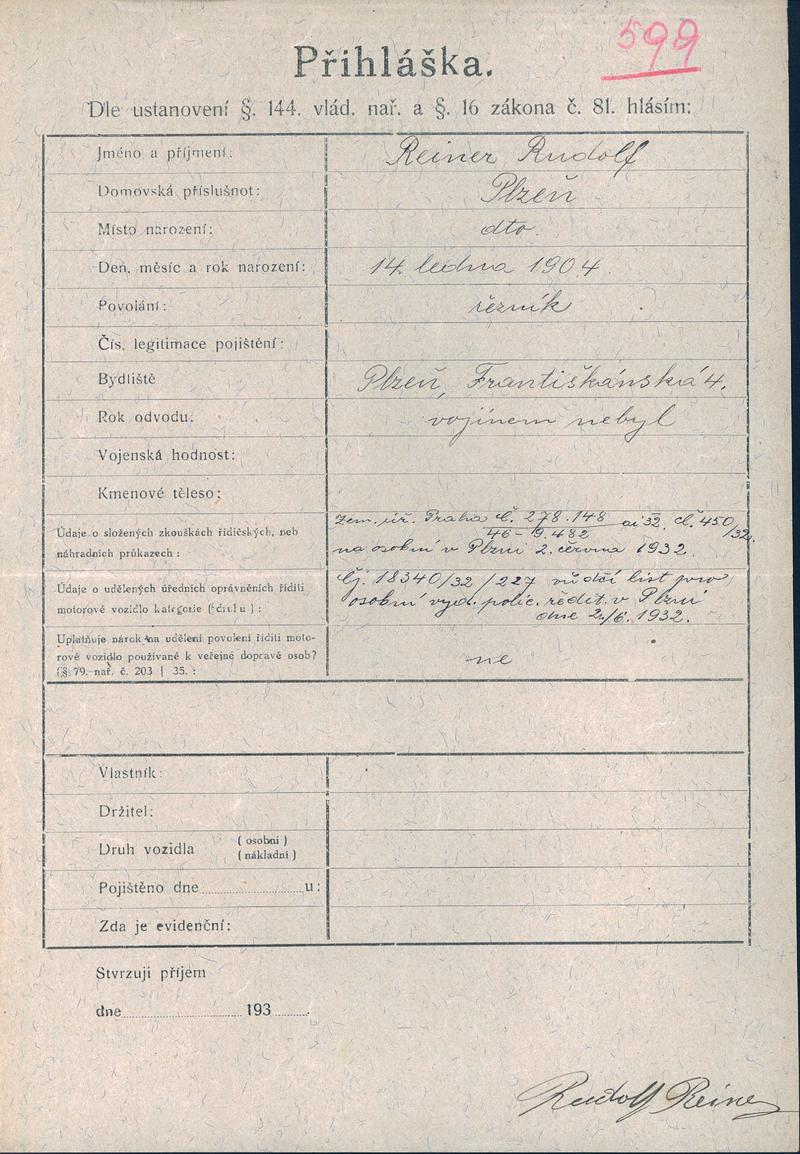 599
Přihláška.
Dle ustanovení §. 144. vlád. nař. a §. 16 zákona č. 81. hlásím:
Jméno a příjmení: Reiner Rudolf
Domovská příslušnot: Plzeň
Místo narození: dto.
Den, měsíc a rok narození: 14. ledna 1904.
Povolání: řezník
Čís. legitimace pojištění:
Bydliště Plzeň, Františkánská 4.
Rok odvodu: vojínem nebyl
Vojenská hodnost:
Kmenové těleso:
Údaje o složených zkouškách řidičských, neb
náhradních průkazech:
Zem. úř. Praha č. 278.148 ai 32. č. 450/32.
46-9.482
na osobní v Plzni 2. června 1932.
Údaje o udělených úředních oprávněních říditi
motorové vozidlo kategorie (druhu):
Čj. 18340/32/227 vůdčí list pro
osobní vyd. polic. ředit. v Plzni
dne 2./6. 1932.
Uplatňuje nárok na udělení povolení říditi moto-
rové vozidlo používané k veřejné dopravě osob?
(§ 79. nař. č. 203 | 35.:
ne
Vlastník:
Držitel:
Druh vozidla (osobní)
(nákladní)
Pojištěno dne u:
Zda je evidenční:
Stvrzuji příjem
dne 193
Rudolf Reiner